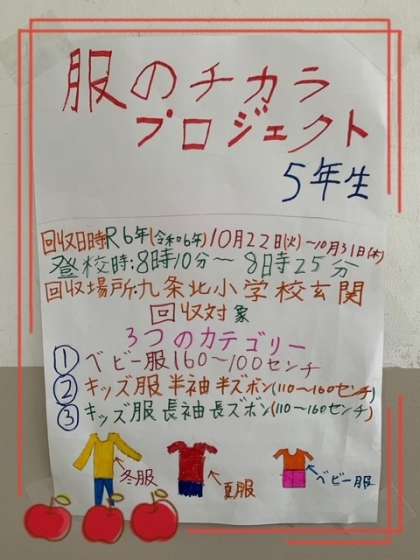 服のチカラ
プロジェクト
5年生
回収日時R6年(令和6年)10月22日(火)~10月31日(木)
登校時:8時10分~8時25分
回収場所:九条北小学校玄関
回収対象
3つのカテゴリー
①ベビー服160~100センチ
②キッズ服半袖半ズボン(110~160センチ)
③キッズ服長袖長ズボン(110~160センチ)
冬服
夏服
ベビー服